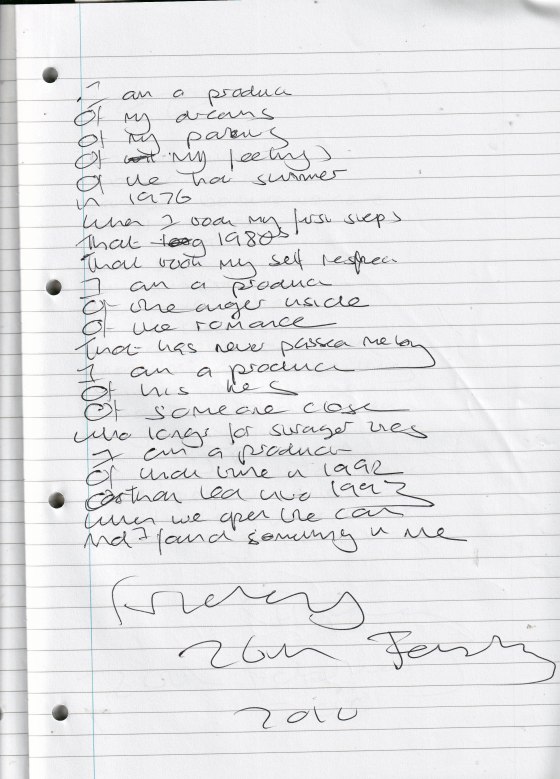 I am a product
Of my dreams
Of my parents
Of my feelings
Of the hot summer
in 1976
When I took my first steps
That long 1980s
That took my self respect
I am a product
Of the anger inside
Of the romance
That has never passed me by
I am a product
Of his lies
Of someone close
who longs for stronger ties
I am a product
Of that time in 1992
that led into 1993
When we open the can
And I found something in me
Friday
26th
2010